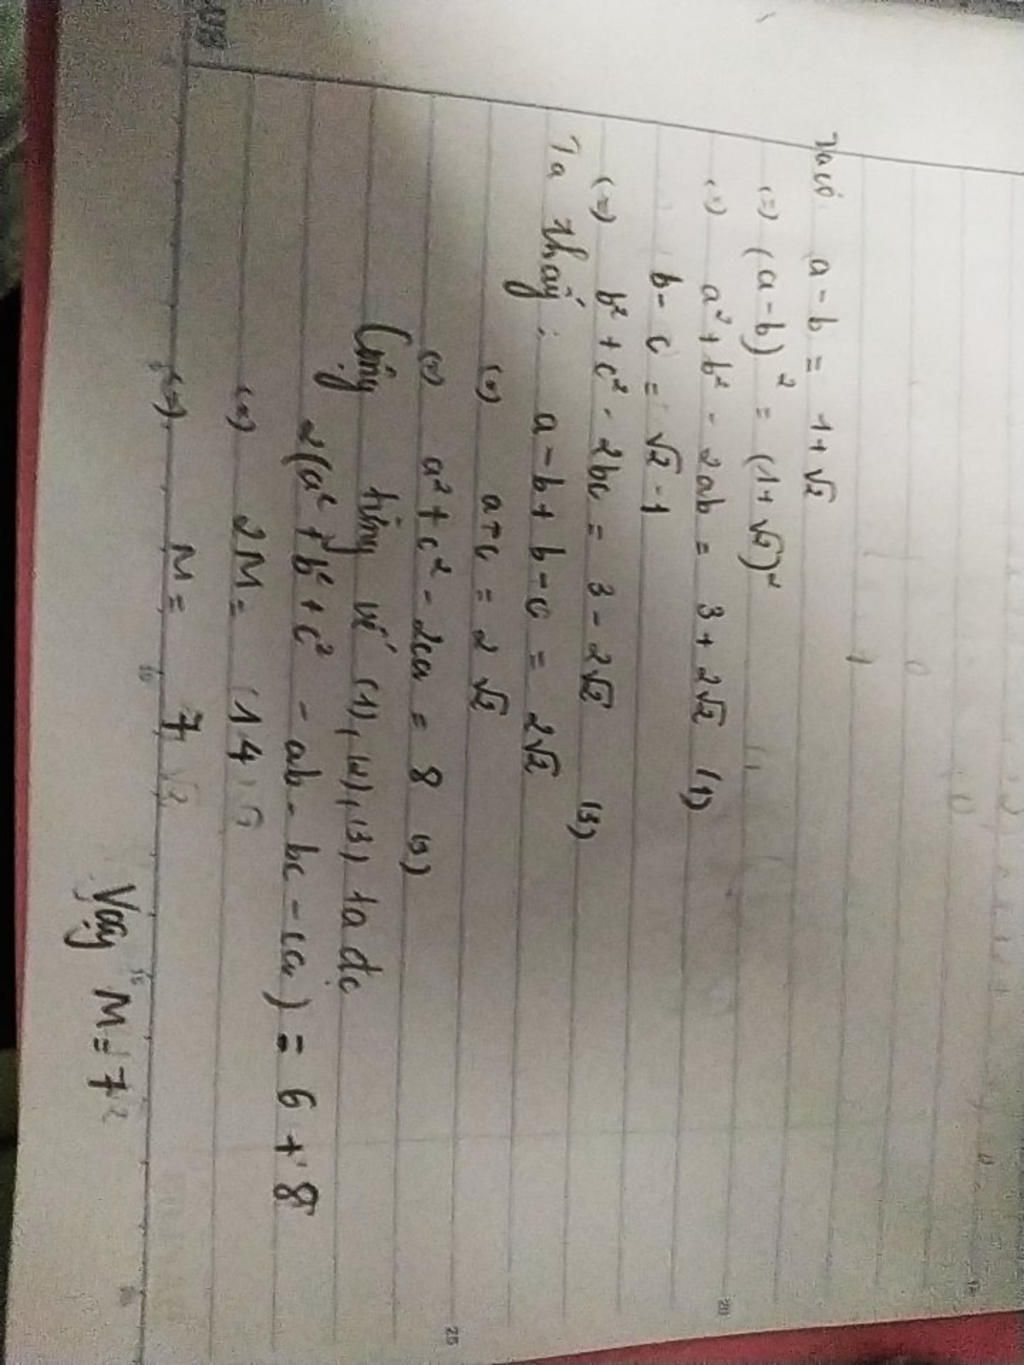 Ta có a - b = 1 + √2
(=) (a - b)² = (1 + √2)²
(=) a² + b² - 2ab = 3 + 2√2 (1)
b - c = √2 - 1
(=) b² + c² - 2bc = 3 - 2√2 (3)
Ta thấy: a - b + b - c = 2√2
(=) a - c = 2√2
(=) a² + c² - 2ca = 8 (3)
Cộng từng vế (1), (2), (3) ta đc
2(a² + b² + c² - ab - bc - ca) = 6 + 8
(=) 2M = 14
(=) M = 7
Vậy M = 7
20
25
10
15